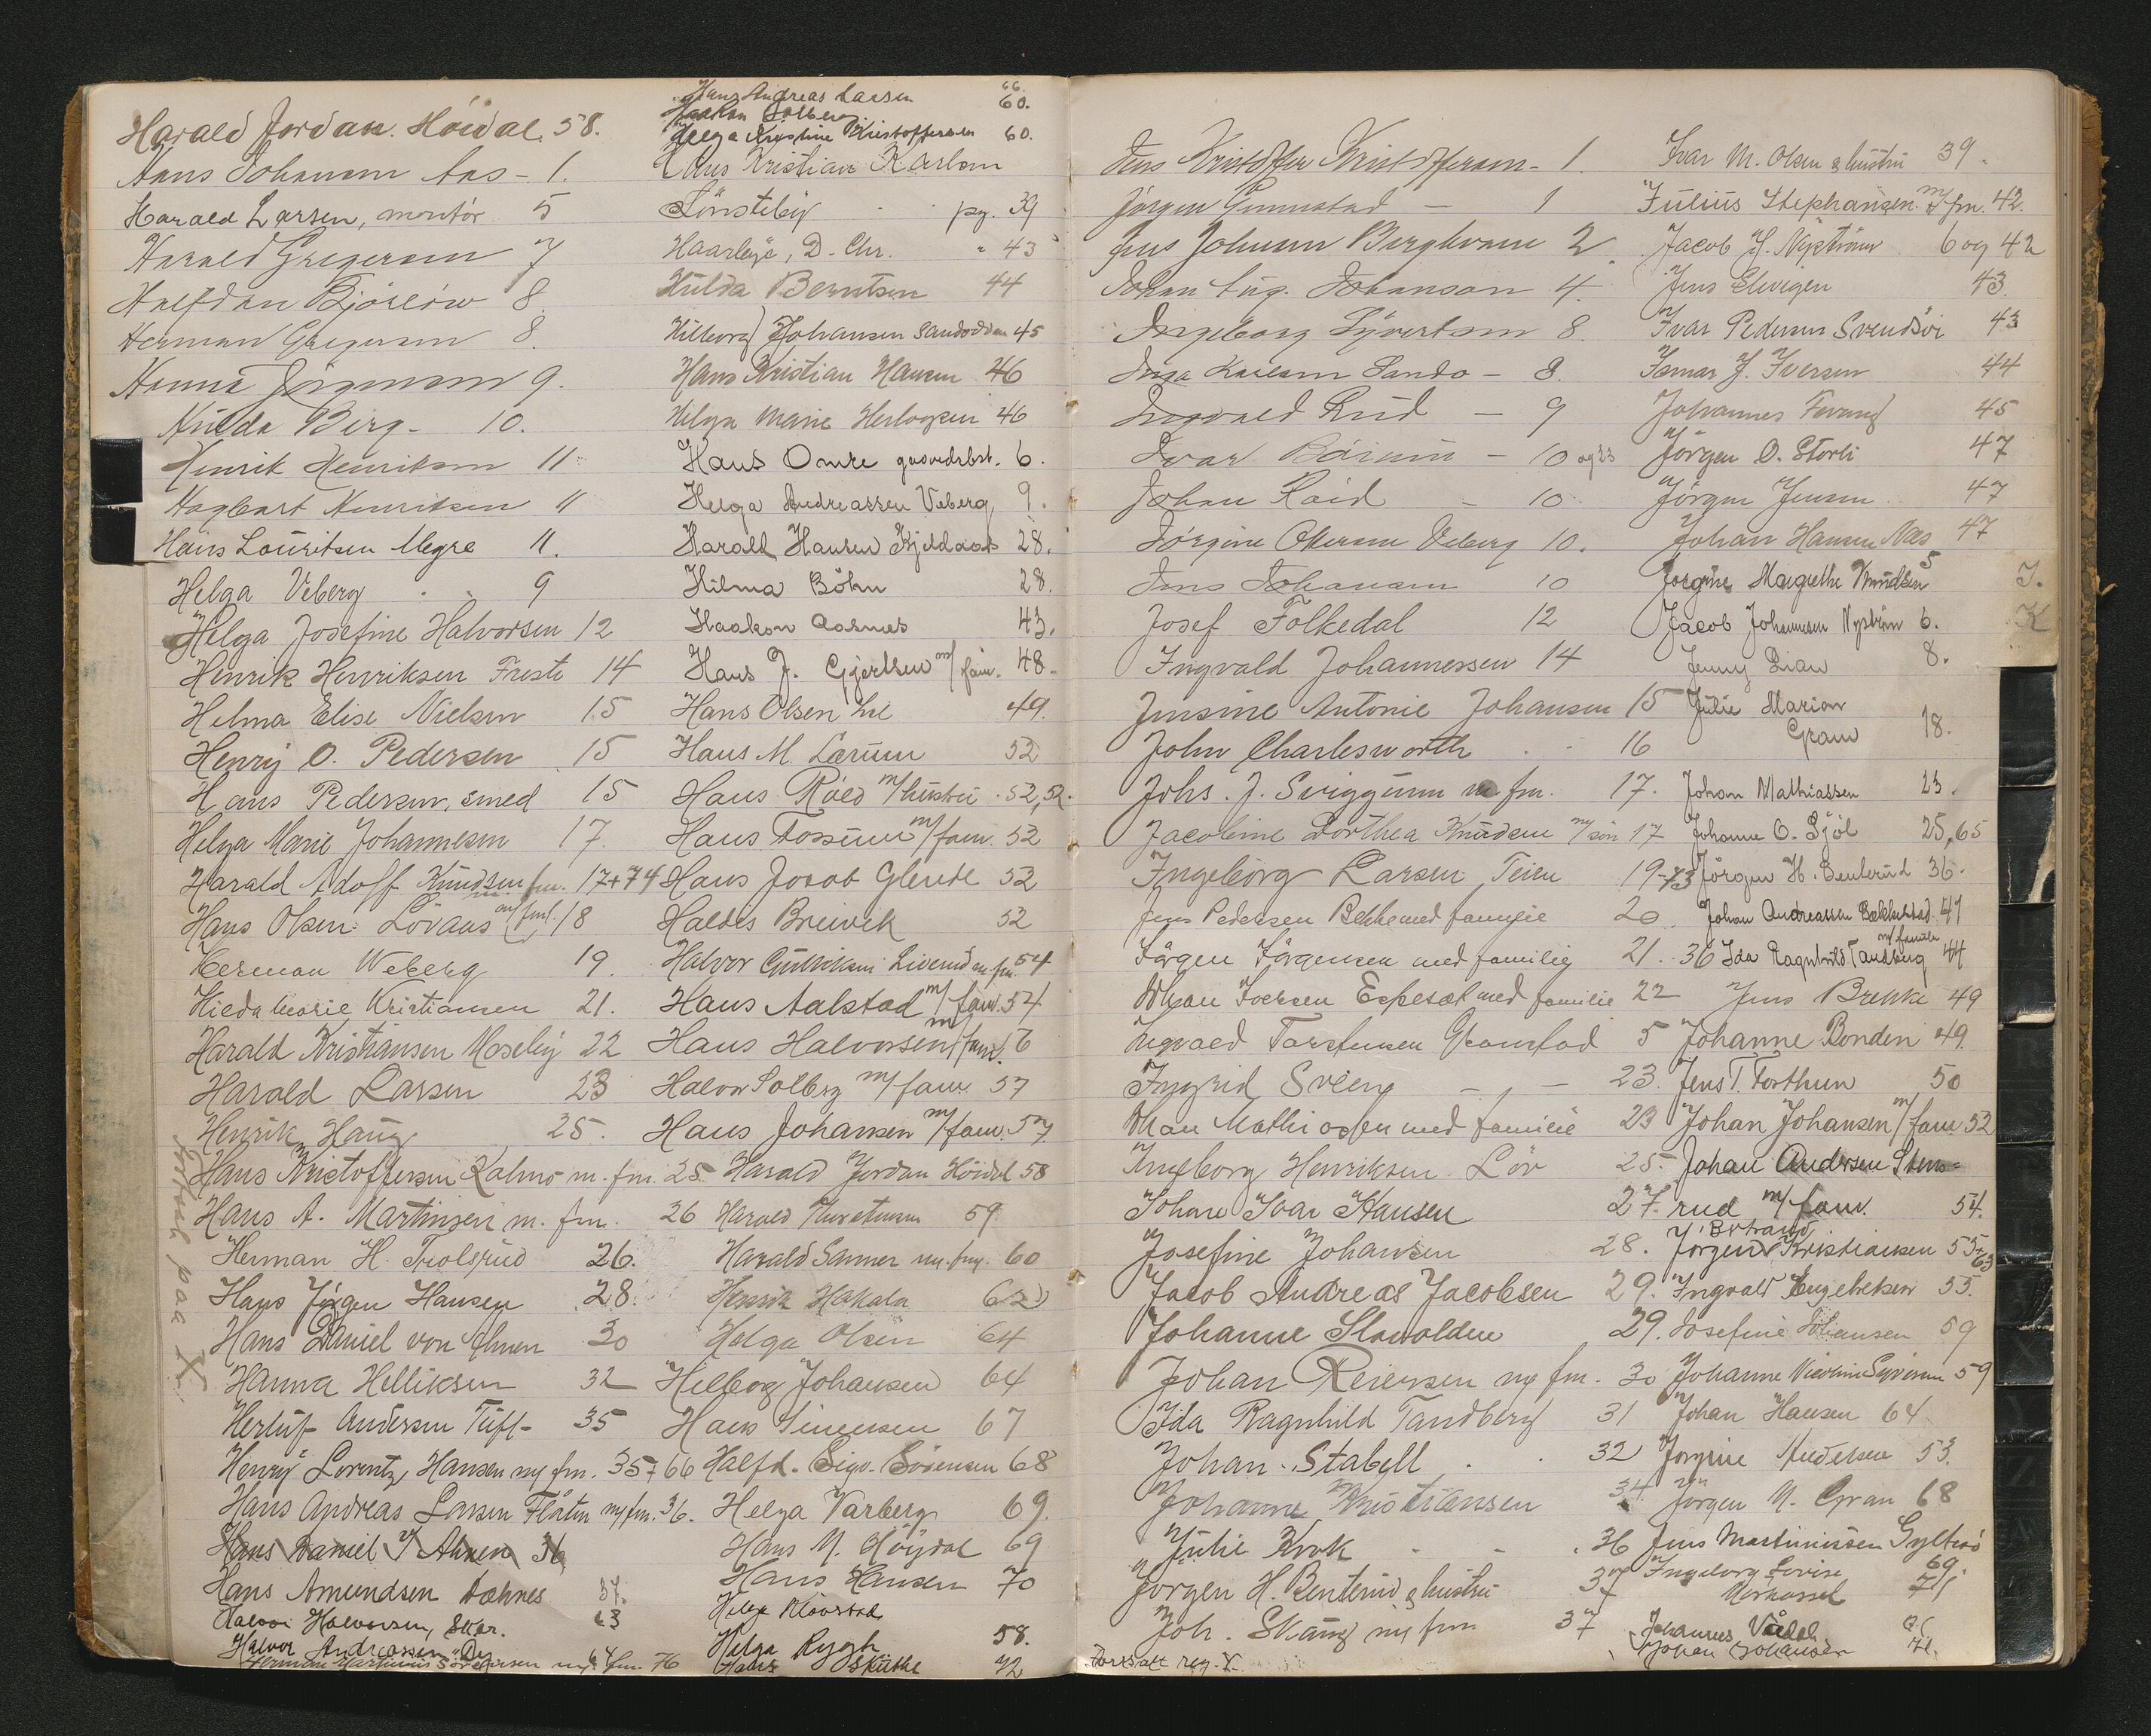 Harald Jordan Höidal. 58.
Hans Johansen Aas - 1.
Harald Larsen, montör 5
Harald Gregersen 7
Halfdan 8.
Herman Gregersen 8.
Hanna Jörgensen 9.
Hulda Berg - 10.
Henrik Henriksen 11
Hagbart Henriksen 11
Hans Lauritsen Megre 11.
Helga Veberg 9
Helga Josefine Halvorsen 12
Henrik Henriksen Freste 14
Helma Elise Nielsen 15
Henry O. Pedersen 15
Hans Pedersen, smed 15
Helga Marie Johannesen 17.
Harald Adolf Knudsen fm. 17+74
Hans Olsen Lövaas m/fml. 18
Herman Weberg 19.
Marie Kristiansen 21.
Harald Kristiansen Moseby 22
Harald Larsen 23
Henrik Haug 25.
Hans Kristoffersen Kalmo m. fm. 25
Hans A. Martinsen m. fm. 26
Herman H. 26.
Hans Jörgen Hansen 28.
Hans Daniel von Ahnen 30
Hanna Helliksen 32
Herluf Andersen Tuft - 35
Henry Lorentz Hansen m/ fm. 35+66
Hans Andreas Larsen Flåten m/fm. 36.
Hans Daniel v Ahnen 36
Hans Amundsen 37.
Halvor Halvorsen, 63
Halvor Andreassen 64
Herman Martinius m/ fm. 76
Fortsat paa X.
Hans Andreas Larsen 66.
Haakon Solberg 60.
Helga Kristine Kristoffersen 60.
Hans Kristian Karlsen
Lönsteby pg. 39
D. Chr. " 43
Hulda Berntsen 44
Hilborg Johansen Sandodden 45
Hans Kristian Hansen 46
Helga Marie 46
Hans Omre 6.
Helga Andreassen Veberg 9.
Harald Hansen Kjeldaas 28.
Hilma Böhn 28.
Haakon Aasnes 43.
Hans J. Gjertsen m/ fam. 48.
Hans Olsen 49.
Hans M. Lærum 52
Hans Röed m/ hustru 52, 52.
Hans Fossum m/ fam. 52
Hans Jacob 52
Haldis Breivik 52
Halvor Gulliksen m. fm. 54
Hans Aalstad m/ fam. 54
Hans Halvorsen m/ fam. 56
Halvor Solberg m/ fam. 57
Hans Johansen m/ fam. 57
Harald Jordan Höidal 58
Harald 59.
Harald Sanner m. fm. 60
Henrik Hakala 62
Helga Olsen 64
Hilborg Johansen 64
Hans Simensen 67
Halfd. Sigv. Sörensen 68
Helga Varberg 69.
Hans M. Höydal 69
Hans Hansen 70
Helge Klovstad
Helga Rygh 58.
Hans 72
Jens Kristoffer Kristoffersen - 1.
Jörgen Gunnestad - 1
Jens Johnsen Berghvam 2.
Johan Aug. Johanson 4.
Ingeborg Syvertsen 8.
Inga Karlsen Sando - 8.
Ingvald Rud - 9
Ivar Bærum - 10 og 23
Johan Roid - 10
Jörgine Olsen Veberg 10.
Jens Johansen 10
Josef Folkedal 12
Ingvald Johannessen 14
Jensine Antonie Johansen 15
John Charlesworth 16
Johs. J. Sviggum m fm. 17.
Jacobine Dorthea Knudsen m/ sön 17
Ingeborg Larsen, Teien 19-73
Jens Pedersen Bekke med familie 20
Jörgen Jörgensen med familie 21. 36
Johan Iversen Espesæt med familie 22
Ingvald Torstensen Gramstad 5
Ingrid Sveeng - - 23.
Johan Mathiassen med familie 23
Ingeborg Henriksen Löv 25.
Johan Ivar Hansen 27.
Josefine Johansen 28.
Jacob Andreas Jacobsen 29.
Johanne Slaatolden 29.
Johan Reiersen m/ fm. 30
Ida Ragnhild Tandberg 31
Johan Stabell 32
Johanne Kristiansen 34.
Julie Krok 36
Jörgen H. Benterud & hustru 37
Joh. Skaug m/ fm 37
Fortsatt reg. X
Ivar M. Olsen & hustru 39.
Julius Stephansen m/ fm. 42.
Jacob J. Nyström 6 og 42
Jens Elvigen 43.
Ivar Pedersen Svendsöi 43
Ismar J. Iversen 44
Johannes Fevang 45
Jörgen O. Storli 47
Jörgen Jensen 47
Johan Hansen Næs 47
Jörgine Margrethe Knudsen 5
Jacob Johannesen Nyström 6.
Jenny Lian 8.
Julie Marion
Gram 18.
Johan Mathiassen 23.
Johanne O. Sjöl 25, 65
Jörgen H. Benterud 36.
Johan Andreassen Bekkelstad 47
Ida Ragnhild Tandberg m/ familie 44
Jens Brekke 49
Johanne Bonden 49.
Jens T. Forthun 50
Johan Johansen m/ fam. 52
Johan Andersen Stens=
rud m/ fam. 54.
Jörgen Kristiansen 55+63
Ingvald Engebretsen 55.
Josefine Johansen 59
Johanne 59
Johan Hansen 64.
Jörgine Andersen 53.
Jörgen M. Gran 68
Jens Martiniussen Gyltesö
69.
Ingeborg Lovise
71
Johannes
Johan Johansen 71.
I.
K